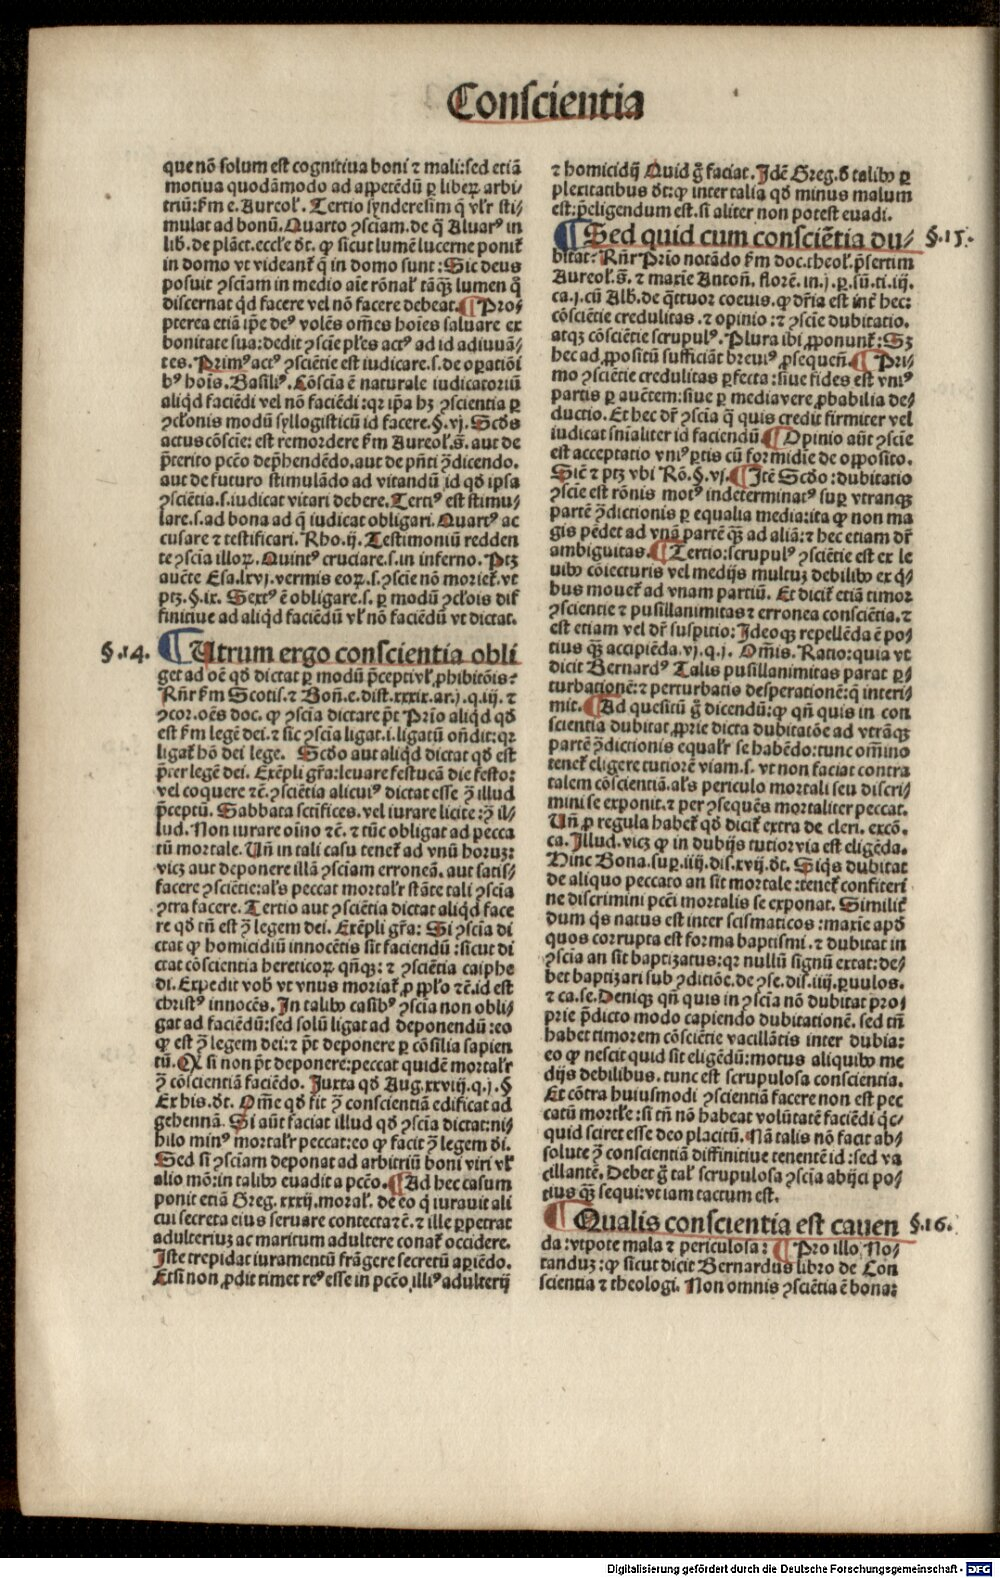 Conscientia
que nõ solum est cognitiua boni ⁊ mali: sed etiã
motiua quodãmodo ad appetẽdũ ꝑ liberꝝ arbi⸗
triũ: ẜm e. Aureol̕. Tertio synderesim q̃ vl̕r sti⸗
mulat ad bonũ. Quarto ꝯsciam. de q̃ Aluarꝰ in
lib. de plãct. eccl̕e d̕t. ꝙ sicut lumẽ lucerne ponit̕
in domo vt videant̕ q̃ in domo sunt: Sic deus
posuit ꝯsciam in medio aĩe rõnal̕ tãqꝫ lumen q̃
discernat qd̕ facere vel nõ facere debeat. ¶ Pro⸗
pterea etiã ip̃e deꝰ volẽs om̃es hoĩes saluare ex
bonitate sua: dedit ꝯscie pl̕es actꝰ ad id adiuuã⸗
tes. Primꝰ actꝰ ꝯsciẽtie est iudicare. s. de oꝑatiõi
bꝰ hoĩs. Basiliꝰ. Cõscia ẽ naturale iudicatoriũ
aliqd̕ faciẽdi vel nõ faciẽdi: qꝛ ip̃a hꝫ ꝯscientia ꝑ
ꝯcl̕onis modũ syllogisticũ id facere. §. vj. Scd̕s
actus cõscie: est remordere ẜm Aureol̕. s̃. aut de
p̃terito pctõ dep̃hendẽdo. aut de pñti ꝯ̃dicendo.
aut de futuro stimulãdo ad vitandũ id qd̕ ipsa
ꝯsciẽtia. s. iudicat vitari debere. Tertiꝰ est stimu⸗
lare. s. ad bona ad q̃ iudicat obligari. Quartꝰ ac
cusare ⁊ testificari. Rho. ij. Testimoniũ redden
te ꝯscia illoꝝ. Quintꝰ cruciare. s. in inferno. Ptꝫ
auc̃te Esa. lxvj. vermis eoꝝ. s. ꝯscie nõ moriet̕. vt
ptꝫ. §. ix. Sextꝰ ẽ obligare. s. ꝑ modũ ꝯcl̕ois dif
finitiue ad aliqd̕ faciẽdũ vl̕ nõ faciẽdũ vt dictat.
§. 14. ¶ Utrum ergo conscientia obli
get ad oẽ qd̕ dictat ꝑ modũ p̃cepti vl̕ ꝓhibitõis?
Rñr ẜm Scotis. ⁊ Boñ. e. dist. xxxix. ar. j. q. iij. ⁊
ꝯcor. oẽs doc. ꝙ ꝯscia dictare p̃t Prĩo aliqd̕ qd̕
est ẜm legẽ dei. ⁊ sic ꝯscia ligat. i. ligatũ oñdit: qꝛ
ligat̕ hõ dei lege. Scd̕o aut aliqd̕ dictat qd̕ est
p̃ter legẽ dei. Exẽpli gr̃a: leuare festucã die festo:
vel coquere ⁊c̃. ꝯsciẽtia alicuiꝰ dictat esse ꝯ̃ illud
p̃ceptũ. Sabbata sctĩfices. vel iurare licite: ꝯ̃ il⸗
lud. Non iurare oĩno ⁊c̃. ⁊ tũc obligat ad pecca
tũ mortale. Uñ in tali casu tenet̕ ad vnũ horuꝫ:
vicꝫ aut deponere illã ꝯsciam erroneã. aut satis⸗
facere ꝯsciẽtie: al̕s peccat mortal̕r stãte tali ꝯscia
ꝯtra facere. Tertio aut ꝯsciẽtia dictat aliqd̕ face
re qd̕ tñ est ꝯ̃ legem dei. Exẽpli gr̃a: Si ꝯscia di
ctat ꝙ homicidiũ innocẽtis sit faciendũ: sicut di
ctat cõscientia hereticoꝝ qñqꝫ: ⁊ ꝯsciẽtia caiphe
di. Expedit vob̕ vt vnus moriat̕ ꝓ pplo ⁊c̃. id est
christꝰ innocẽs. In talibꝰ casibꝰ ꝯscia non obli⸗
gat ad faciẽdũ: sed solũ ligat ad deponendũ: eo
ꝙ est ꝯ̃ legem dei: ⁊ p̃t deponere ꝑ cõsilia sapien
tũ. Qꝛ si non p̃t deponere: peccat quidẽ mortal̕r
ꝯ̃ cõscientiã faciẽdo. Juxta qd̕ Aug. xxviij. q. j. §
Ex his. d̕t. Om̃e qd̕ fit ꝯ̃ conscientiã edificat ad
gehennã. Si aũt faciat illud qd̕ ꝯscia dictat: ni⸗
hilo minꝰ mortal̕r peccat: eo ꝙ facit ꝯ̃ legem di.
Sed si ꝯsciam deponat ad arbitriũ boni viri vl̕
alio mõ: in talibꝰ euadit a pctõ. ¶ Ad hec casum
ponit etiã Greg. xxxij. moral̕. de eo q̕ iurauit ali
cui secreta eius seruare contecta ⁊c̃. ⁊ ille ꝑpetrat
adulteriuꝫ ac maritum adultere conat̕ occidere.
Iste trepidat iuramentũ frãgere secretũ aꝑiẽdo.
Et si non ꝓdit timet reꝰ esse in pctõ illiꝰ adulterij
⁊ homicidij Quid g̃ faciat. Idẽ Greg. d̕ talibꝰ ꝑ
plexitatibus d̕t: ꝙ inter talia qd̕ minus malum
est: p̃eligendum est. si aliter non potest euadi.
¶ Sed quid cum consciẽtia du⸗ §. 15.
bitat? Rñr Prĩo notãdo ẜm doc. theol. p̃sertim
Aureol̕. s̃. ⁊ maxie Antoñ. florẽ. in. j. ꝑ. sũ. ti. iij.
ca. j. cũ Alb̕. de q̃ttuor coeuis. ꝙ dr̃ia est int̕ hec:
cõsciẽtie credulitas. ⁊ opinio: ⁊ ꝯscie dubitatio.
atqꝫ cõsciẽtie scrupulꝰ. Plura ibi ꝓponunt̕: Sꝫ
hec ad ꝓpositũ sufficiãt breuiꝰ ꝓsequeñ. ¶ Pri⸗
mo ꝯsciẽtie credulitas ꝑfecta: siue fides est vniꝰ
partis ꝑ auc̃tem: siue ꝑ media vere ꝓbabilia de⸗
ductio. Et hec dr̃ ꝯscia q̃ quis credit firmiter vel
iudicat sñialiter id faciendũ ¶ Opinio aũt ꝯscie
est acceptatio vniꝰ ꝑtis cũ formidie de opposito.
Sic̃ ⁊ ptꝫ vbi Rõ. §. vj. ¶ Itẽ Scd̕o: dubitatio
ꝯscie est rõnis motꝰ indeterminatꝰ suꝑ vtranqꝫ
partẽ ꝯ̃dictionis ꝑ equalia media: ita ꝙ non ma
gis pẽdet ad vnã partẽ qꝫ̃ ad aliã: ⁊ hec etiam dr̃
ambiguitas. ¶ Tertio: scrupulꝰ ꝯsciẽtie est ex le
uibꝰ cõiecturis vel medijs multuꝫ debilibꝰ ex q̕⸗
bus mouet̕ ad vnam partiũ. Et dicit̕ etiã timor
ꝯscientie ⁊ pusillanimitas ⁊ erronea consciẽtia. ⁊
est etiam vel dr̃ suspitio: Ideoqꝫ repellẽda ẽ po⸗
tius qꝫ̃ accipiẽda. vj. q. j. Om̃is. Ratio: quia vt
dicit Bernardꝰ Talis pusillanimitas parat ꝑ⸗
turbationẽ: ⁊ perturbatis desperationẽ: q̃ interi⸗
mit. ¶ Ad quesitũ g̃ dicendũ: ꝙ qñ quis in con
scientia dubitat ꝓprie dicta dubitatõe ad vtrãqꝫ
partẽ ꝯ̃dictionis equal̕r se habẽdo: tunc om̃ino
tenet̕ eligere tutiorẽ viam. s. vt non faciat contra
talem cõscientiã. al̕s periculo mortali seu discri⸗
mini se exponit. ⁊ per ꝯsequẽs mortaliter peccat.
Uñ ꝓ regula habet̕ qd̕ dicit̕ extra de cleri. excõ.
ca. Illud. vicꝫ ꝙ in dubijs tutior via est eligẽda.
Hinc Bona. sup. iiij. dis. xvij. d̕t. Siq̕s dubitat
de aliquo peccato an sit mortale: tenet̕ confiteri
ne discrimini pctĩ mortalis se exponat. Similit̕
dum q̕s natus est inter scismaticos: maxie apd̕
quos corrupta est forma baptismi. ⁊ dubitat in
ꝯscia an sit baptizatus: qꝛ nullũ signũ extat: de⸗
bet baptizari sub ꝯditiõe. de ꝯse. dis. iiij. ꝑuulos.
⁊ ca. se. Deniqꝫ qñ quis in ꝯscia nõ dubitat pro⸗
prie p̃dicto modo capiendo dubitationẽ. sed tñ
habet timorem cõsciẽtie vacillãtis inter dubia:
eo ꝙ nescit quid sit eligẽdũ: motus aliquibꝰ me
dijs debilibus. tunc est scrupulosa conscientia.
Et cõtra huiusmodi ꝯscientiã facere non est pec
catũ mortl̕e: si tñ nõ habeat volũtatẽ faciẽdi q̕c⸗
quid sciret esse deo placitũ. Nã talis nõ facit ab⸗
solute ꝯ̃ conscientiã diffinitiue tenentẽ id: sed va
cillantẽ. Debet g̃ tal̕ scrupulosa ꝯscia abijci po⸗
tius qꝫ̃ sequi: vt iam tactum est.
¶ Qualis conscientia est cauen §. 16.
da: vtpote mala ⁊ periculosa? ¶ Pro illo No⸗
tanduꝫ: ꝙ sicut dicit Bernardus libro de Con
scientia ⁊ theologi. Non omnis ꝯsciẽtia ẽ bona:
Digitalisierung gefördert durch die Deutsche Forschungsgemeinschaft - DFG